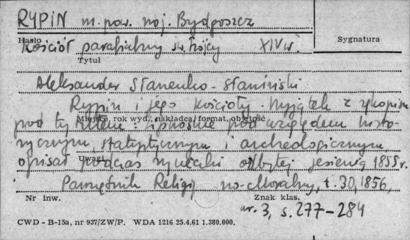 RYPIN m. pow. woj. Bydgoszcz
Hasło
Kościół parafialny św. Trójcy XIV w.
Sygnatura
Tytuł
Aleksander Stanenko-Staniński
Rypin i jego kościoły. Wyjątek z rękopisu
Miejsce, rok wyd., nakładca, format, objętość
pod tytułem: i pod względem histo-
rycznym, statystycznym i archeologicznym
Uwagi
opisał podczas wycieczki odbytej jesienią 1855 r.
Pamiętnik Religijno-Moralny, t. 30, 1856,
Nr inw.
Znak klas.
nr. 3, s. 277-284
CWD - B-15a, nr 937/ZW/P. WDA 1216 25.4.61 1.280.000.